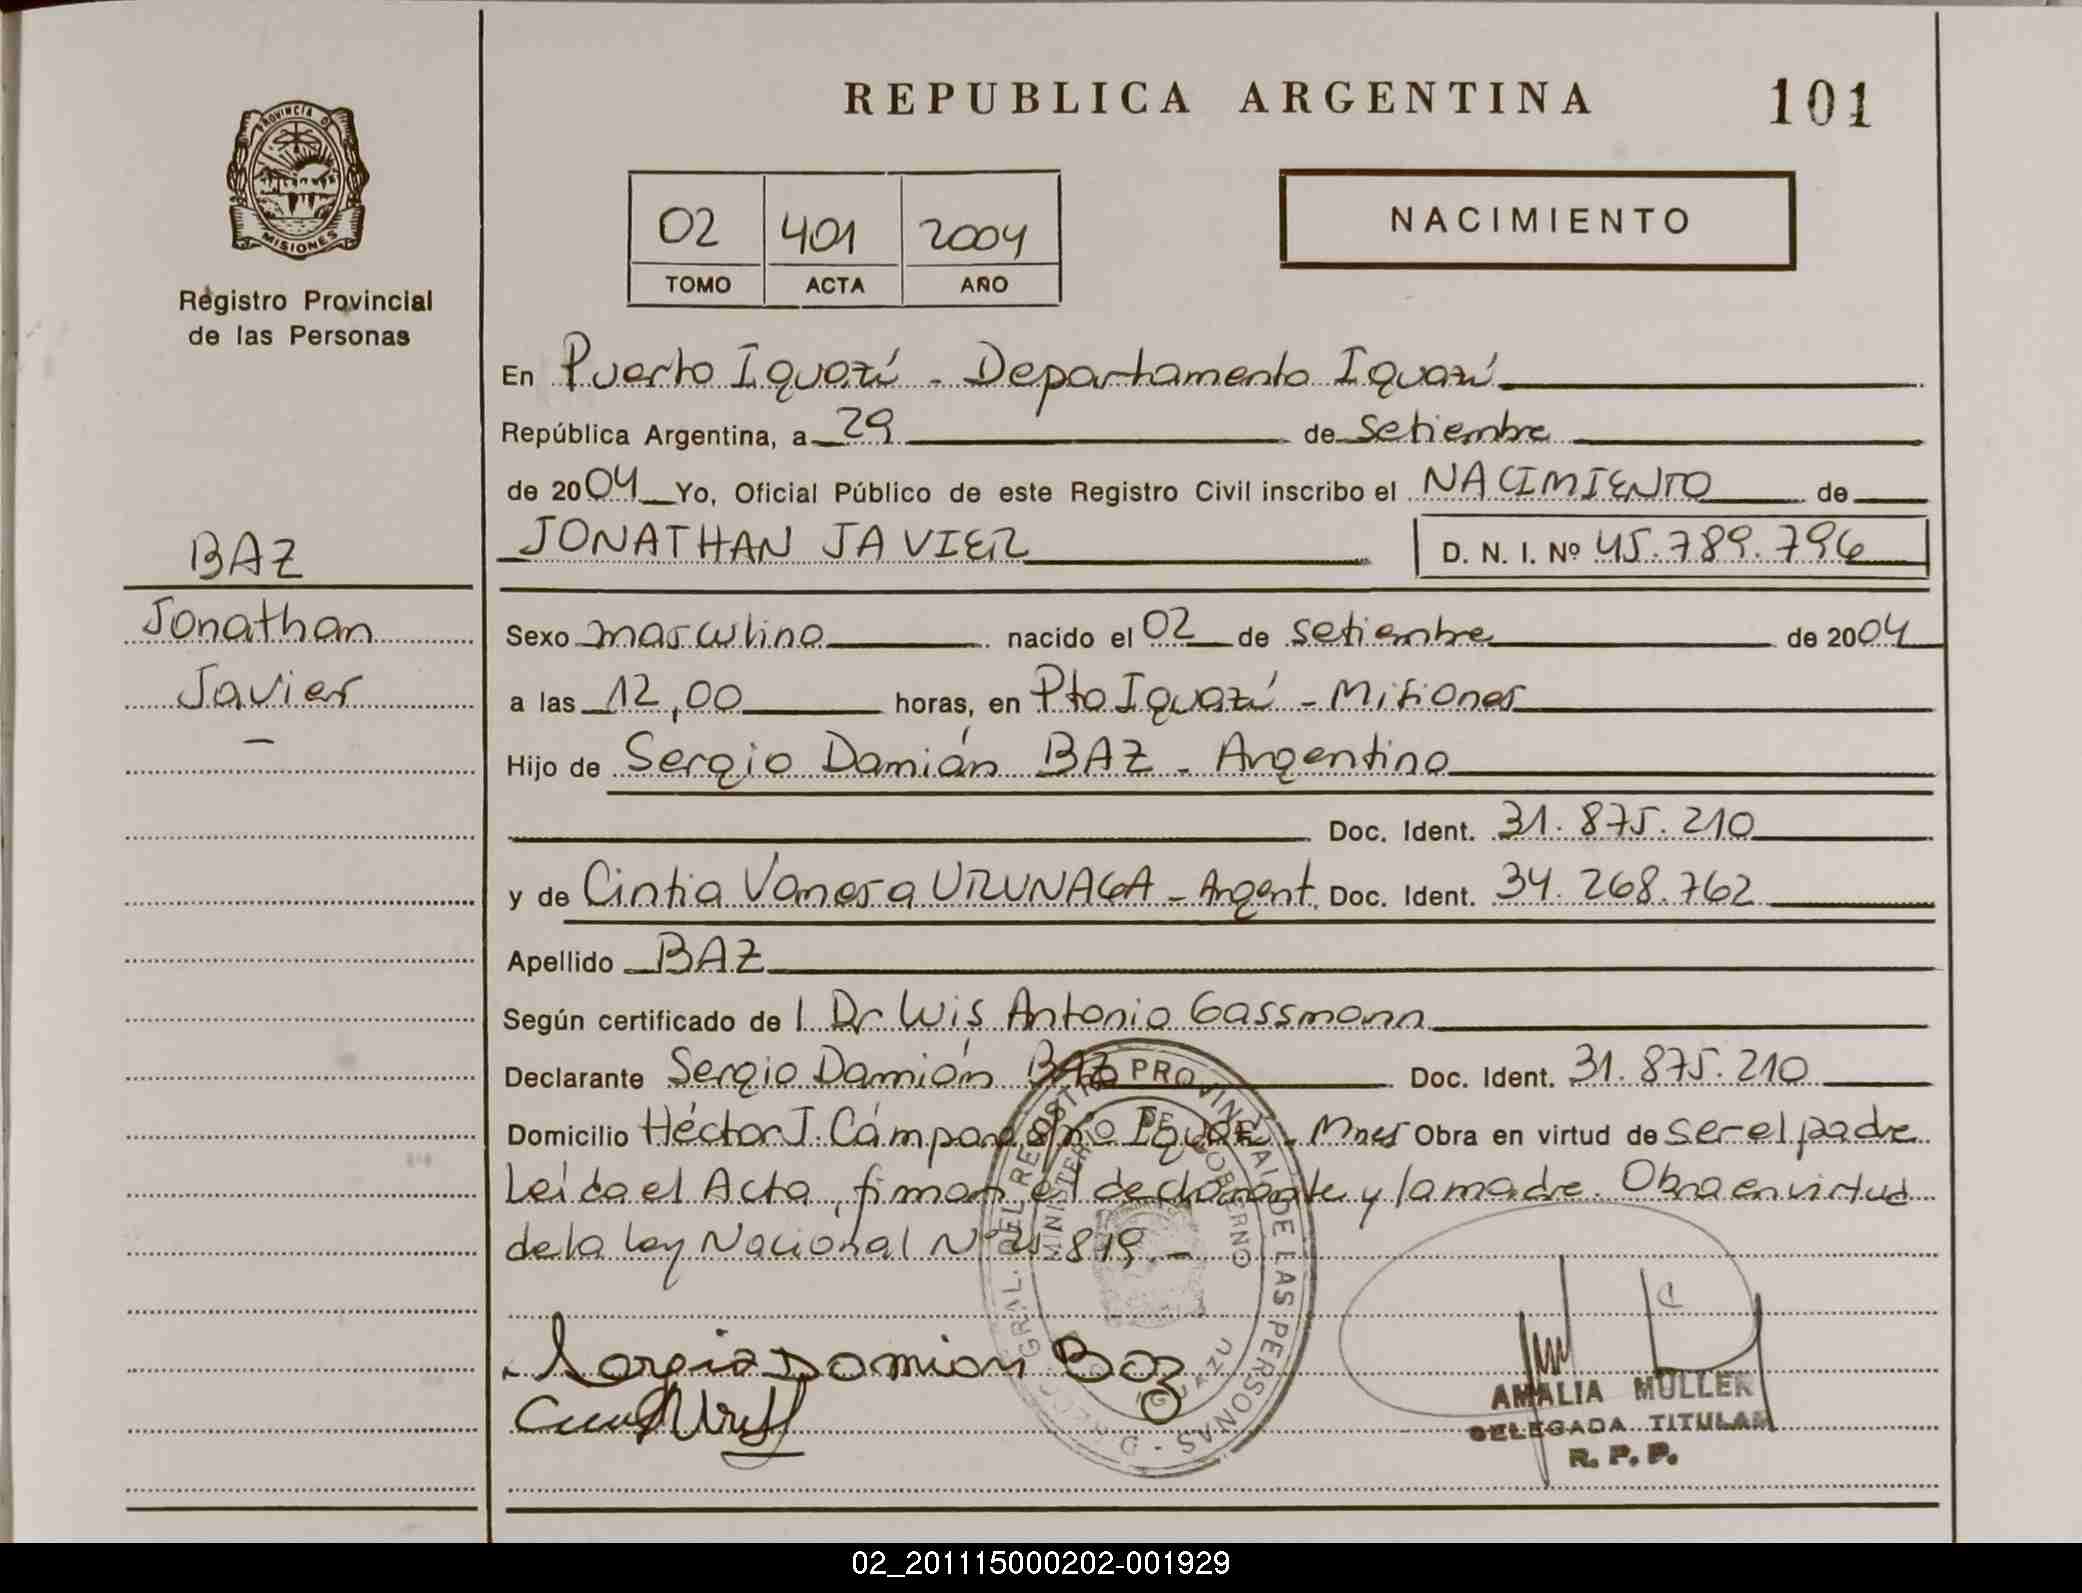 REPUBLICA ARGENTINA
101
PROVINCIA D
MISIONES
Registro Provincial
de las Personas
02 401 2004
TOMO ACTA AÑO
NACIMIENTO
En Puerto Iguazú - Departamento Iguazú
República Argentina, a 29 de setiembre
de 2004 Yo, Oficial Público de este Registro Civil inscribo el NACIMIENTO de
JONATHAN JAVIER D. N. I. Nº 45.789.796
BAZ
Jonathan
Javier
-
Sexo masculino nacido el 02 de setiembre de 2004
a las 12,00 horas, en Pto Iguazú - Misiones
Hijo de Sergio Damián BAZ - Argentino
Doc. Ident. 31.875.210
y de Cintia Vanesa URUNAGA - Argent. Doc. Ident. 34.268.762
Apellido BAZ
Según certificado de l Dr Luis Antonio Gassmann
Declarante Sergio Damián BAZ Doc. Ident. 31.875.210
Domicilio Héctor J. Cámpora s/nº Iguazú - Mnes Obra en virtud de ser el padre
Leída el Acta, firman el declarante y la madre. Obra en virtud
de la ley Nacional Nº 21.819.-
Sergio Damian Baz
DIRECC. GRAL. DEL REGISTRO PROVINCIAL DE LAS PERSONAS
MINISTERIO DE GOBIERNO
IGUAZU
AMALIA MULLER
DELEGADA TITULAR
R. P. P.
02_201115000202-001929